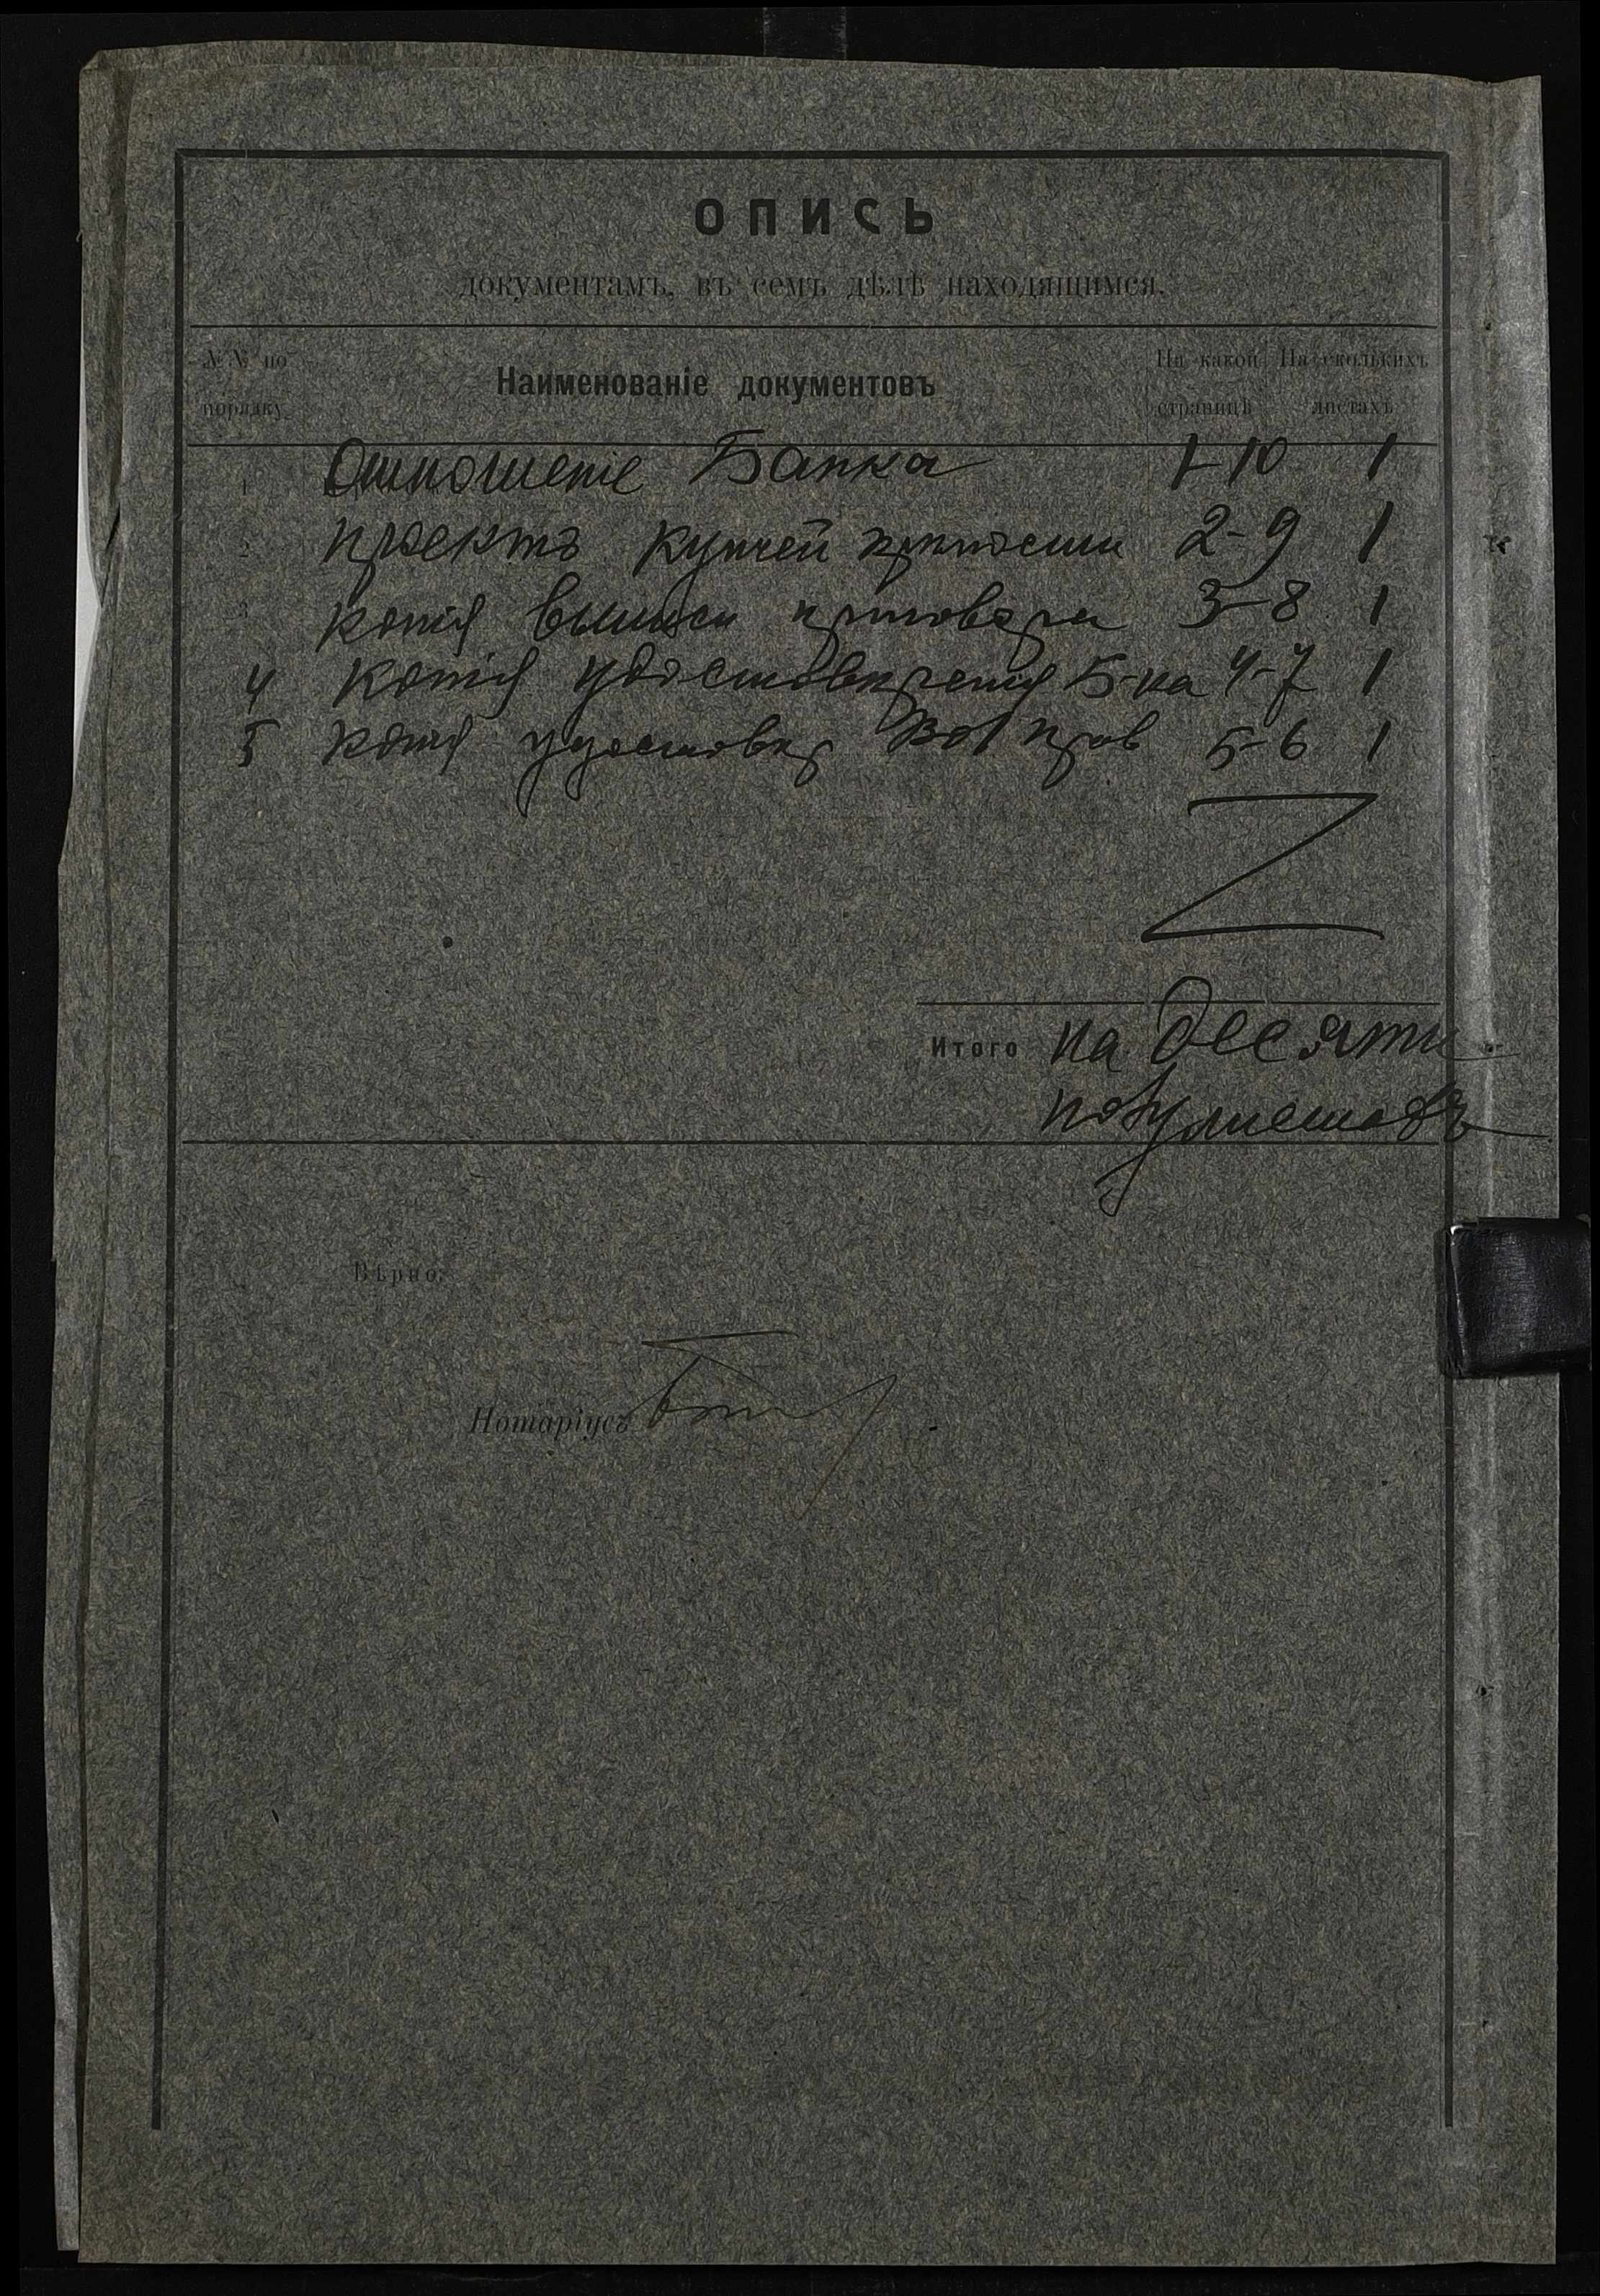 ОПИСЬ
документамъ, въ семъ дѣлѣ находящимся.
№№ по порядку
Наименованіе документовъ
На какой страницѣ
На сколькихъ листахъ
1 Отношеніе Банка 1-10 1
2 проектъ купчей крѣпости 2-9 1
3 копія выписи приговора 3-8 1
4 Копія удостовѣренія Б-ка 4-7 1
5 копія удостовѣр Вол прав 5-6 1
Итого на десяти
полулистовъ
Вѣрно:
Нотаріусъ